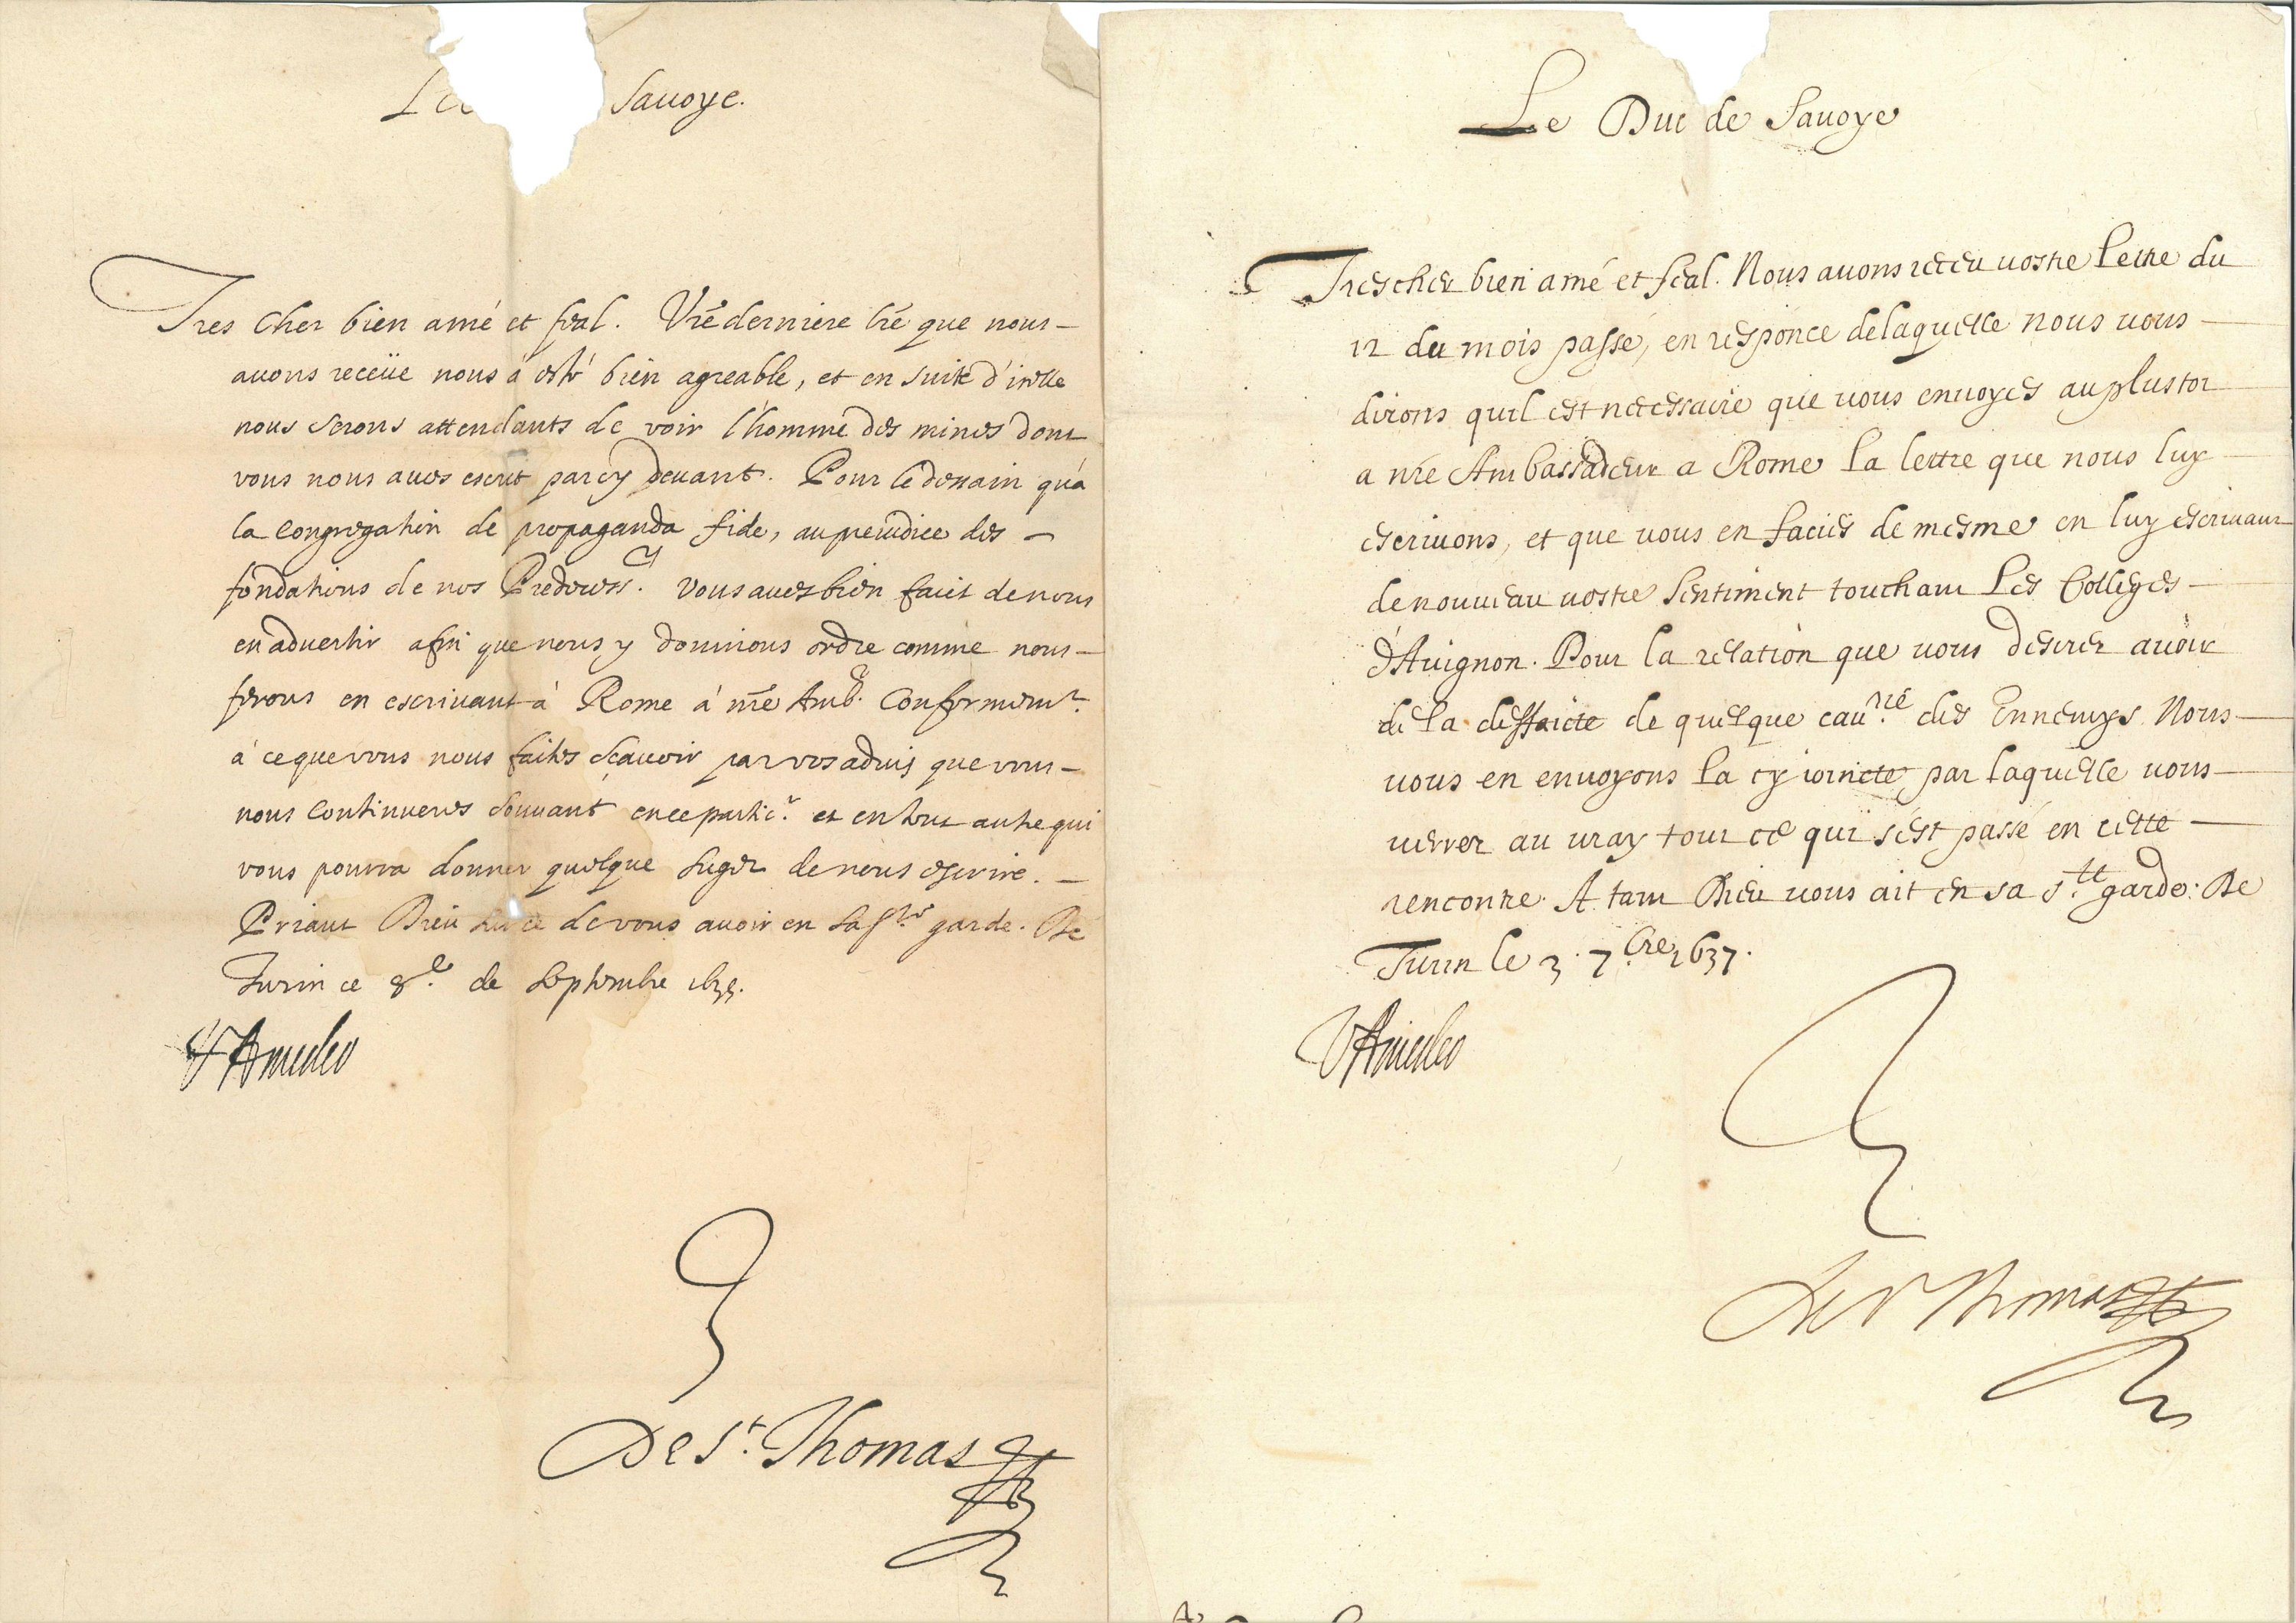 Le Sauoye.
Tres cher bien amé et feal. Vre derniere lre que nous
auons receüe nous a esté bien agreable, et en suite d'icelle
nous serons attendants de voir l'homme des mines dont
vous nous aues escrit par cy deuant. Pour le dessain qu'a
la congregation de propaganda fide, au preiudice des
fondations de nos Predecess.rs vous aues bien faict de nous
en aduertir afin que nous y donnions ordre comme nous
ferons en escriuant à Rome à nre Amb.r conformem.t
à ce que vous nous faites sçauoir par vos aduis que vous
nous continueres souuant en ce partic.r et en tout autre qui
vous pourra donner quelque suget de nous escrire.
Priant Dieu sur ce de vous auoir en sa s.te garde. De
Turin ce 8.e de septembre
V Amedeo
De S.t Thomas
Le Duc de Sauoye
Trescher bien amé et feal. Nous auons receu vostre lettre du
12 du mois passé, en responce de laquelle nous vous
dirons quil est necessaire que vous enuoyes au plustot
a nre Ambassadeur a Rome la lettre que nous luy
escriuons, et que vous en facies de mesme en luy escriuant
de nouueau vostre sentiment touchant les Colleges
d'Auignon. Pour la relation que vous desirez auoir
de la deffaicte de quelque cau.rie des Ennemys Nous
vous en enuoyons la cy ioincte par laquelle vous
verrez au vray tout ce qui s'est passé en cette
rencontre. A tant Dieu vous ait en sa s.te garde. De
Turin le 3. 7.bre 1637.
V Amedeo
De S.t Thomas